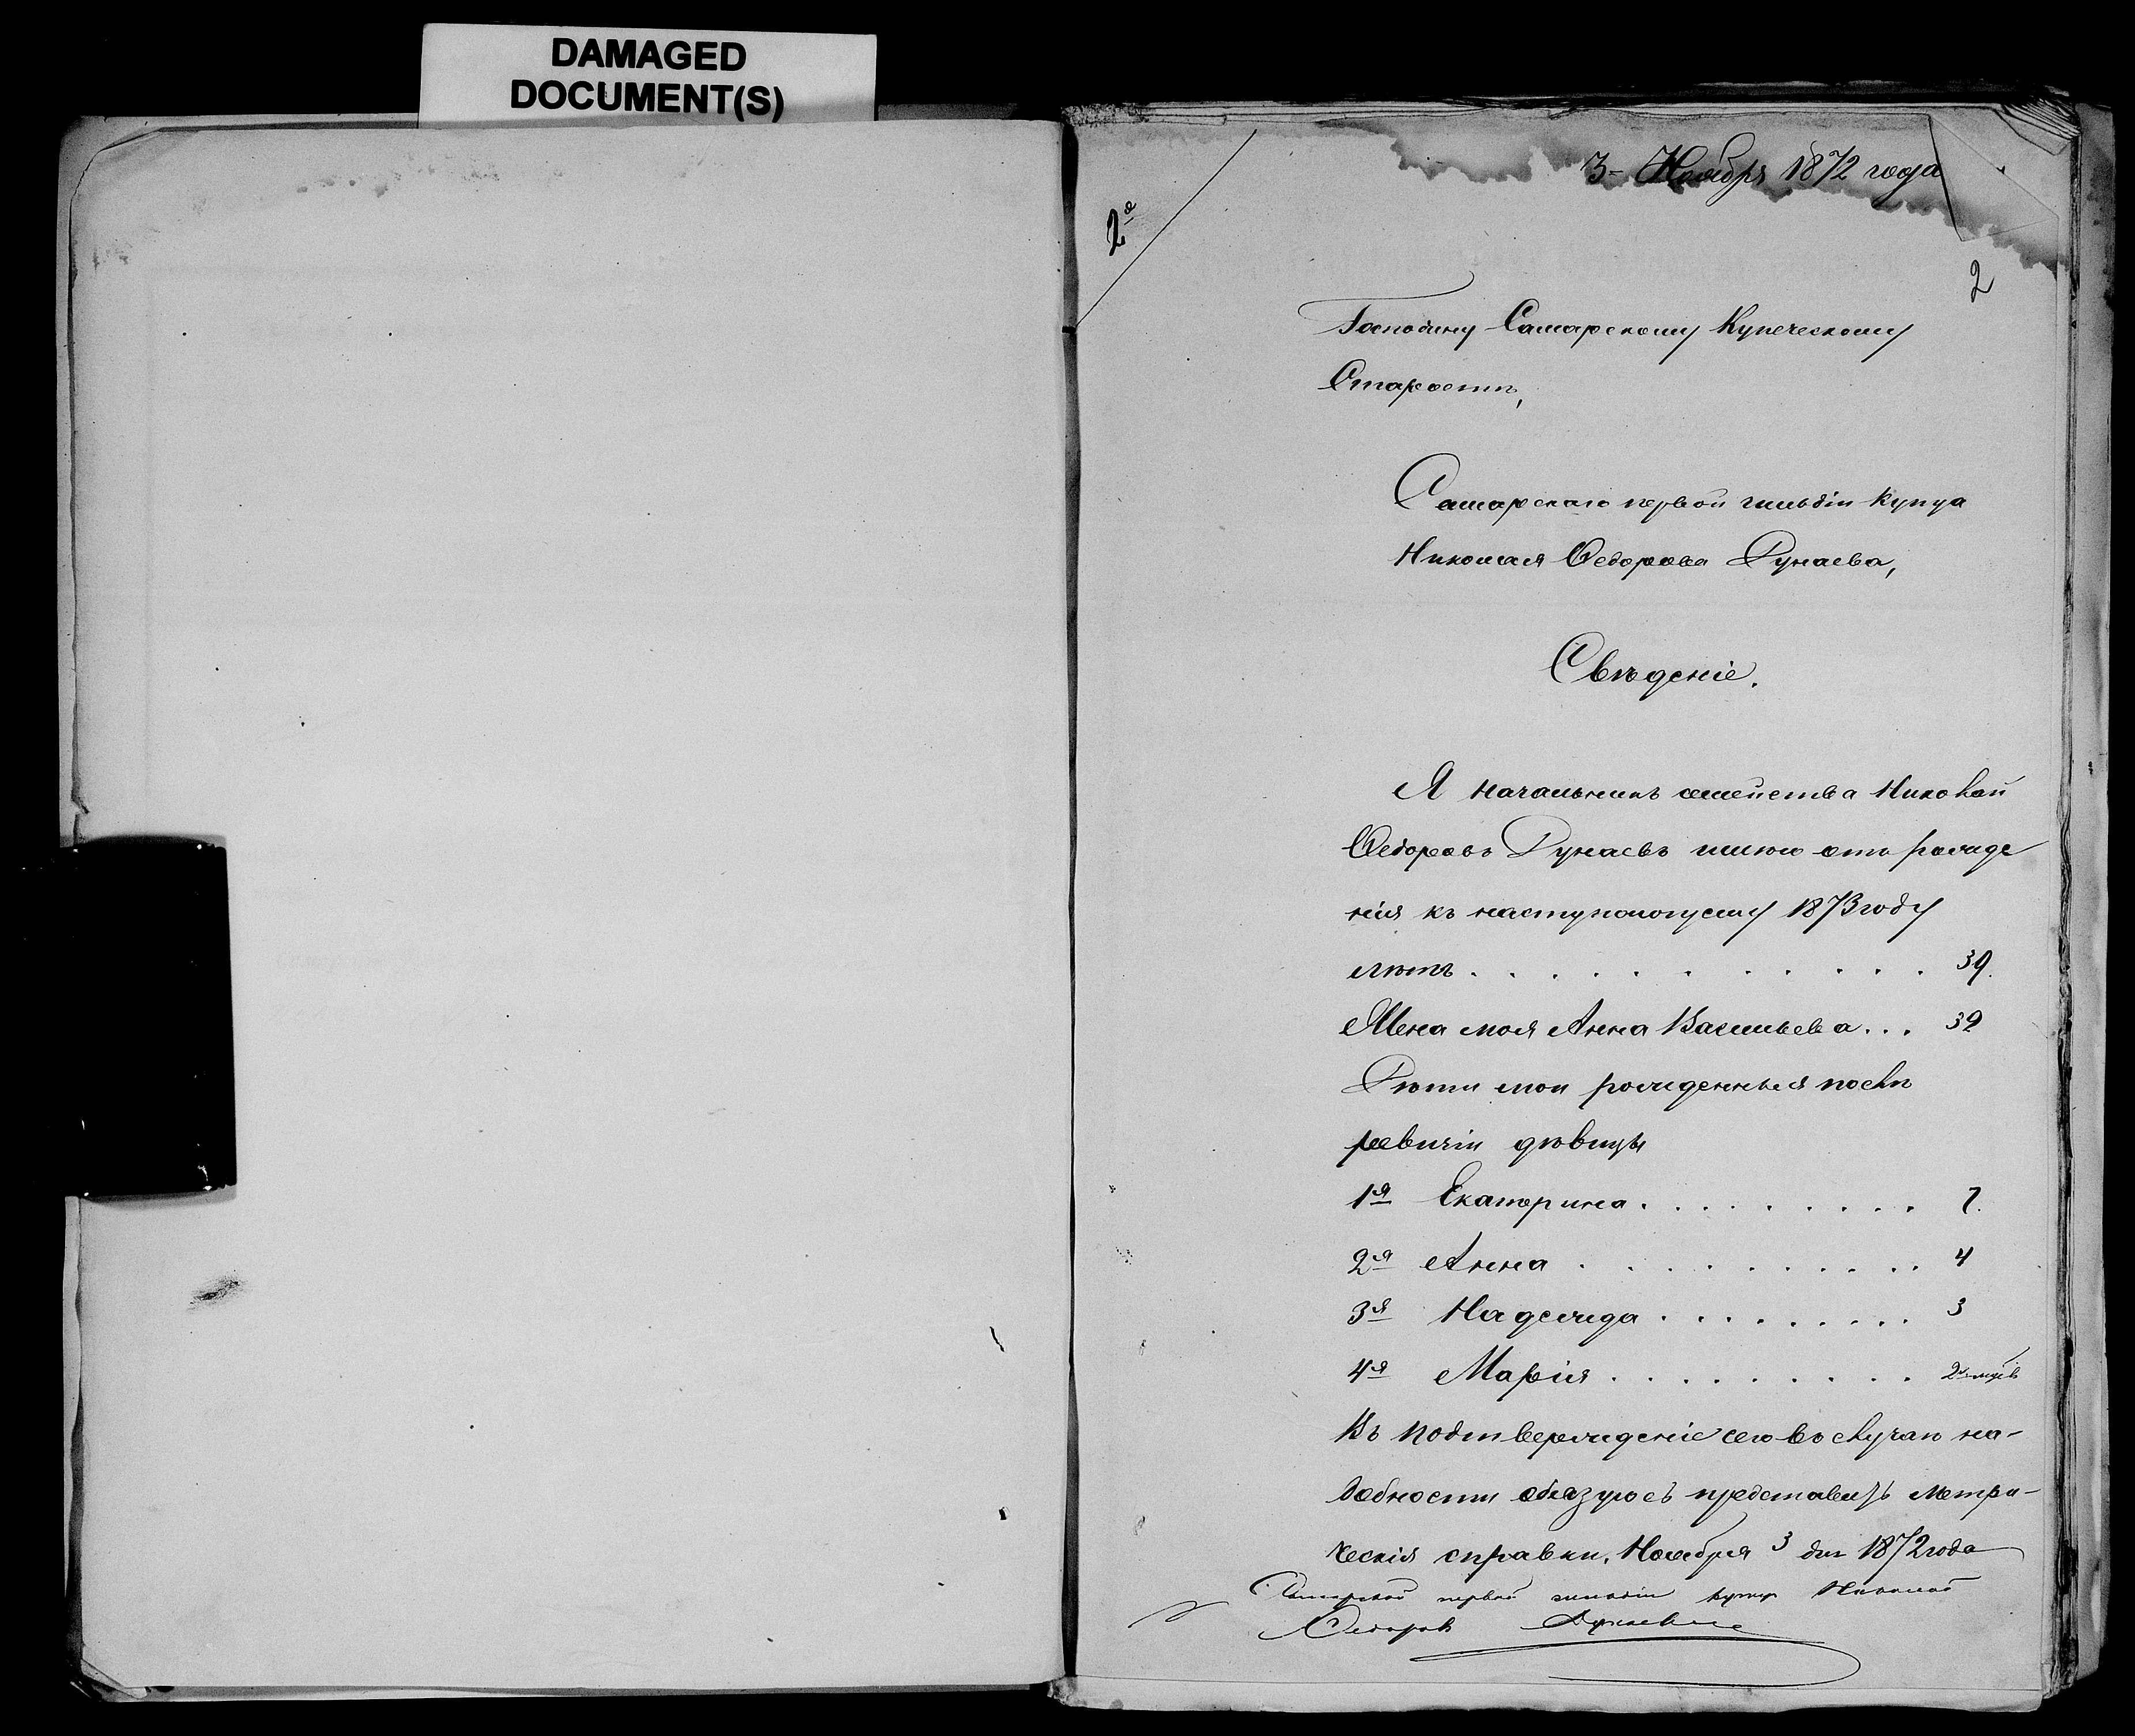 DAMAGED
DOCUMENT(S)
3 - Ноября 1872 года
2е
2
Господину Самарскому Купеческому
Старостѣ,
Самарскаго первой гильдіи купца
Николая Ѳедорова Дунаева,
Свѣденіе.
Я начальникъ семейства Николай
Ѳедоровъ Дунаевъ имѣю отъ рожде
нія къ наступающему 1873 году
лѣтъ . . . . . . . . . . 39.
Жена моя Анна Васильева . . . 39
Дѣти мои рожденныя послѣ
ревизіи дѣвицы
1я Екатерина . . . . . . . . . 7.
2я Анна . . . . . . . . . . 4
3я Надежда . . . . . . . . . 3
4я Марія . . . . . . . . . 2 мѣс
Въ подтвержденіе сего въ случаѣ на-
добности обязуюсь представить метри-
ческія справки. Ноября 3 дня 1872 года
Самарской первой гильдіи купец Николай
Ѳедоров Дунаевъ